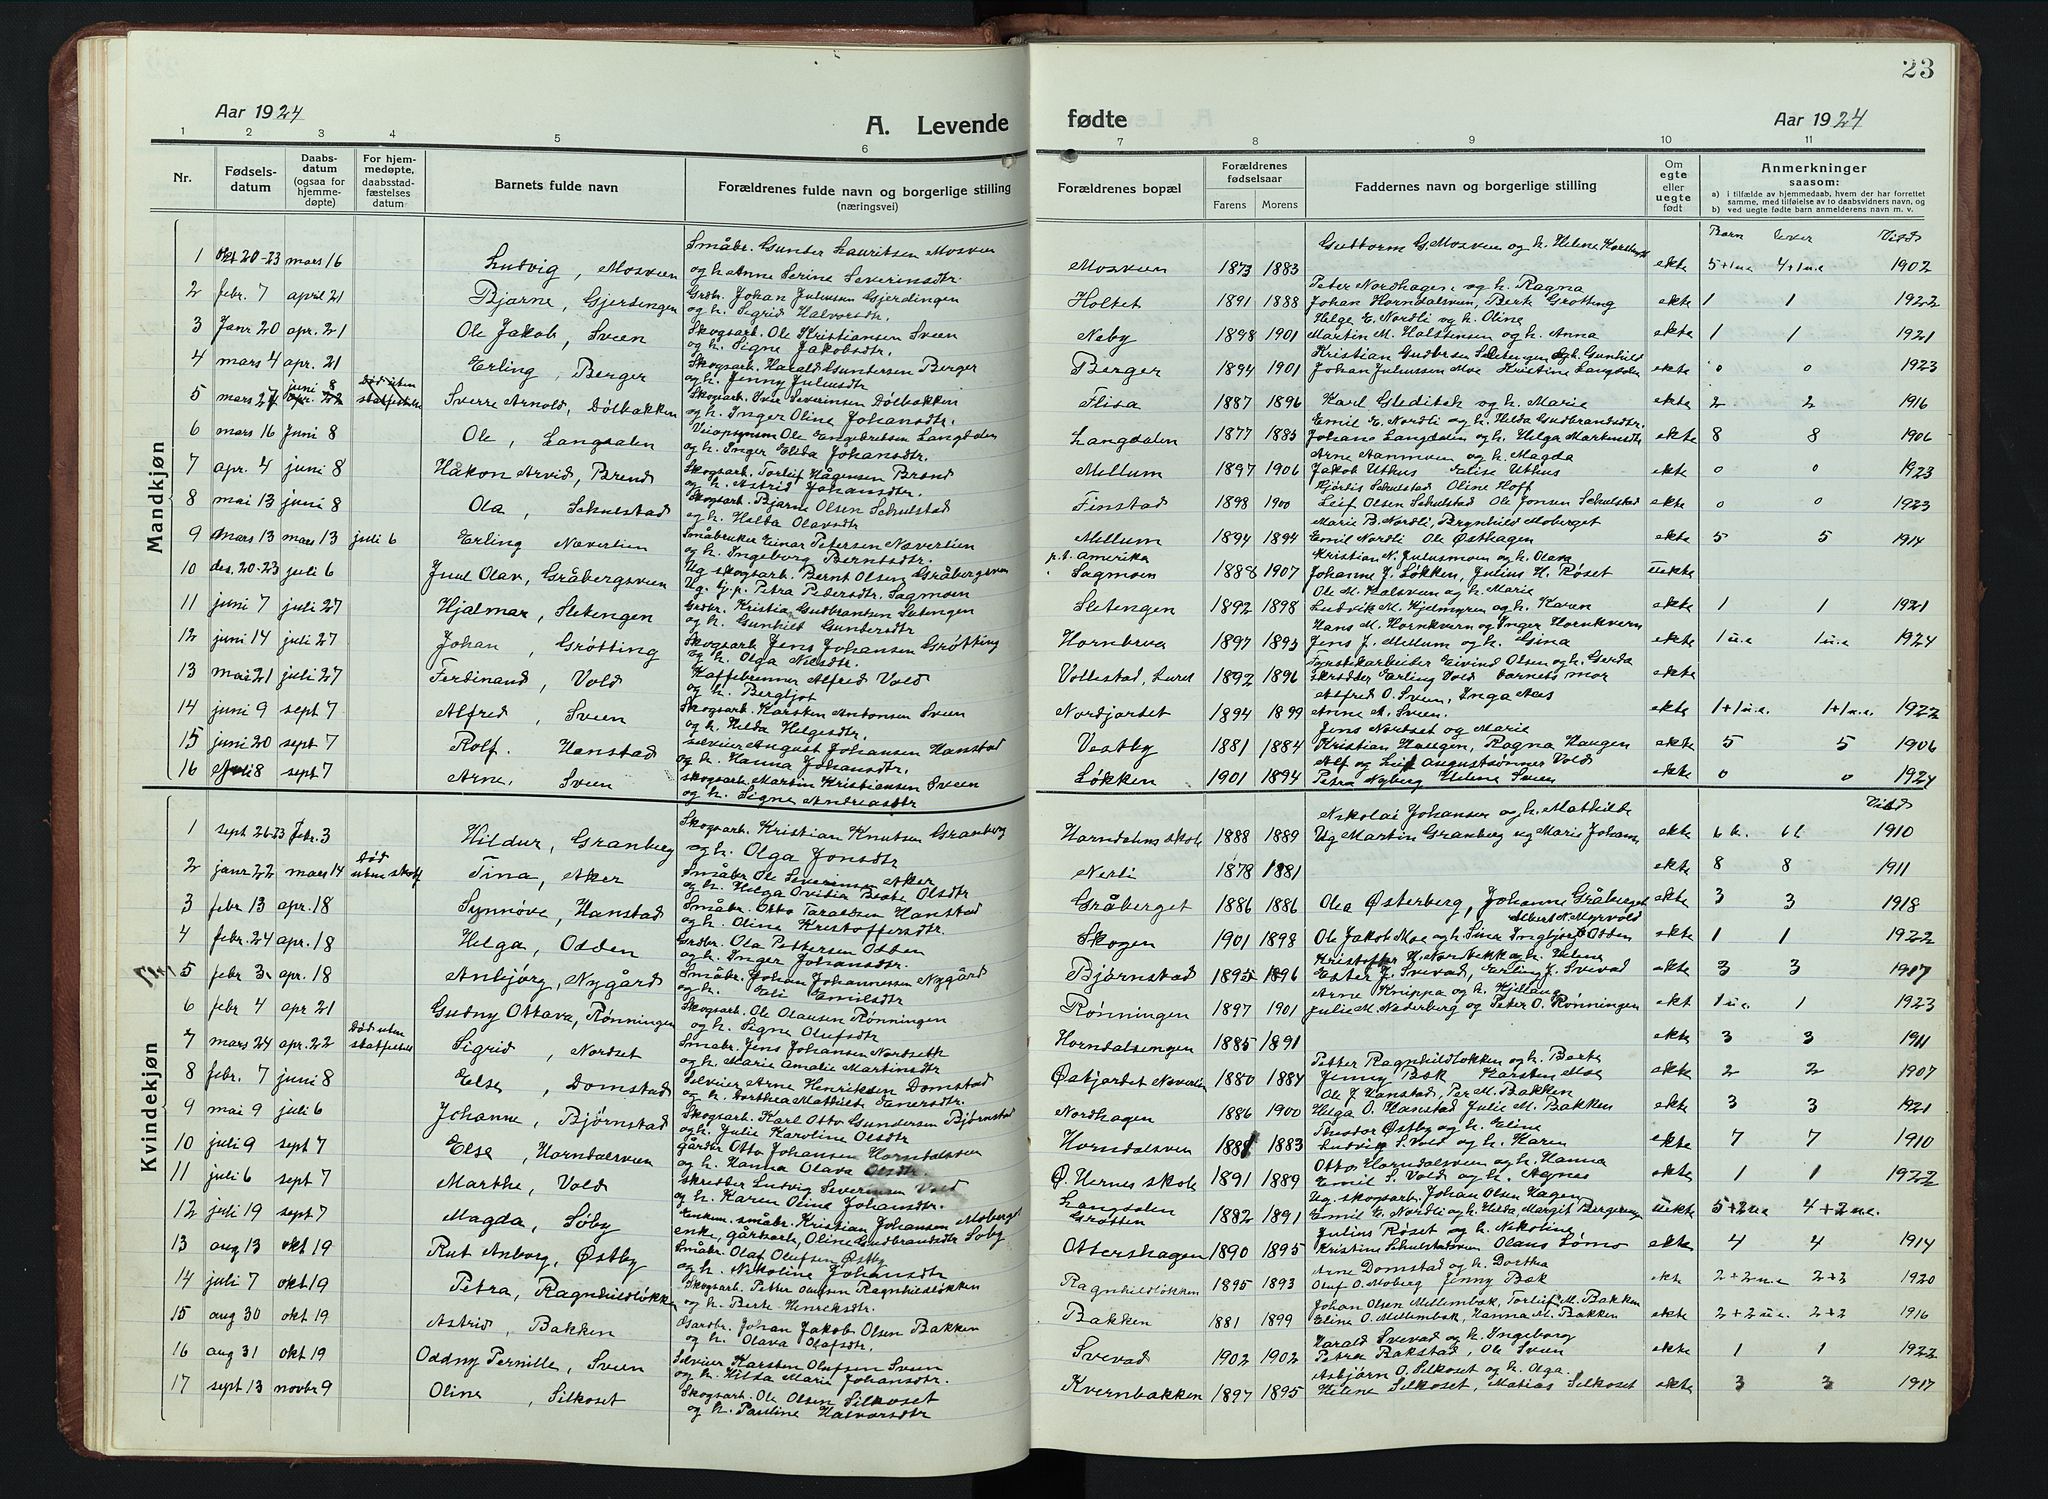 23
Aar 1924
A. Levende
fødte
Aar 1924
1 2 3 4 5 6 7 8 9 10 11
Nr.
Fødsels-
datum
Daabs-
datum
(ogsaa for
hjemme-
døpte)
For hjem-
medøpte,
daabsstad-
fæstelses
datum
Barnets fulde navn
Forældrenes fulde navn og borgerlige stilling
(næringsvei)
Forældrenes bopæl
Forældrenes
fødselsaar
Farens Morens
Faddernes navn og borgerlige stilling
Om
egte
eller
uegte
født
Anmerkninger
saasom:
a) i tilfælde av hjemmedaab, hvem der har forrettet
samme, med tilføielse av to daabsvidners navn, og
b) ved uegte fødte barn anmelderens navn m. v.
Mandkjøn
Barn lever Viet
1 20-23 mars 16 Ludvig, Mosveen Småbr. Gunder Lauritsen Mosveen
og h. Anne Serine Severinsdtr. Mosveen 1873 1883 Guttorm G. Mosveen og h. Helene ekte 5+1u.e 4+1u.e 1902
2 febr. 7 april 21 Bjarne, Gjerdingen Grdbr. Johan Juliussen Gjerdingen
og h. Sigrid Halvorsdtr. Holtet 1891 1888 Peter Nordhagen og h. Ragna
Johan Horndalsveen, Berte Grøtting ekte 1 1 1922
3 Janr 20 apr. 21 Ole Jakob, Sveen Skogsarb. Ole Kristiansen Sveen
og h. Signe Jakobsdtr. Neby 1898 1901 Helge E. Nordli og h. Oline
Martin M. Halstensen og h. Anna ekte 1 1 1921
4 mars 4 apr. 21 Erling, Berger Skogsarb. Harald Gundersen Berger
og h. Jenny Juliusdtr. Berger 1894 1901 Kristian Gudbrsen Seterengen og h. Gunhild
Johan Juliussen Moe Kristine Langdalen ekte 0 0 1923
5 mars 27 juni 8 Død uten
stadfestelse Sverre Arnold, Dölbakken Skogsarb. Sver Severinsen Dölbakken
og h. Inger Oline Johansdtr. Flisa 1887 1896 Karl Gleditch og h. Marie ekte 2 2 1916
6 mars 16 Juni 8 Ole, Langdalen Veiopsynsm Ole Engebretsen Langdalen
og h. Inger Elida Johansdtr. Langdalen 1877 1885 Emil E. Nordli og h. Hilda Gudbrandsdtr.
Johano Langdalen og h. Helga Martinsdtr ekte 8 8 1906
7 apr. 4 juni 8 Håkon Arvid, Brend Skogsarb. Torleif Hågensen Brænd
og h. Astrid Johansdtr. Mellum 1897 1906 Arne Aanmoen og h. Magda
Jakob Uthus Elise Uthus ekte 0 0 1923
8 mai 13 juni 8 Ola, Schulstad Skogsarb Bjarne Olsen Schulstad
og h. Halda Olavsdtr Finstad 1898 1900 Hjördis Schulstad Oline Hoff
Leif Olsen Schulstad Ole Jonsen Schulstad ekte 0 0 1923
9 mars 13 mars 13 juli 6 Erling Nævertien Småbruker Einar Petersen Nævertien
og h. Ingeborg Berntsdtr. Mellum 1894 1894 Marie B. Nordli, Brynhild Moberget
Emil Nordli Ole Østhagen ekte 5 5 1914
10 des. 20-23 juli 6 Juul Olav, Gråbergsveen Ug. skogsarb. Bernt Olsen Gråbergsveen
Ug. g.p. Petra Pedersdtr. Sagmoen p.t. Amerika
Sagmoen 1888 1907 Kristian N. Julusmoen og h. Olava
Johanne J. Løkken, Julius H. Røset uekte
11 juni 7 juli 27 Hjalmar, Setengen Grdbr. Kristia Gudbrantsen Setengen
og h. Gunhild Gundersdtr Setengen 1892 1898 Ole M. Halsveen og h. Marie
Ludvik M. Hjelmyren og h. Karen ekte 1 1 1921
12 juni 14 juli 27 Johan, Grøtting Skogsarb Jens Johansen Grøtting
og h. Olga Nilsdtr. Hornbrua 1897 1893 Hans M. Hornkvern og Inger Hornkvern
Jens J. Mellum og h. Gina ekte 1u.e 1u.e 1924
13 mai 21 juli 27 Ferdinand, Vold Kaffebrenner Alfred Vold
og h. Bergljot Vollestad, Luret 1892 1896 Eivind Olsen og h. Gerda
Skredder Erling Vold barnets mor ekte
14 juni 9 sept 7 Alfred, Sveen Skogsarb. Karsten Antonsen Sveen
og h. Hilda Helgesdtr. Nordjordet 1894 1899 Alfred O. Sveen, Inga Aas
Arne A. Sveen. ekte 1+1u.e. 1+1u.e. 1922
15 juni 20 sept 7 Rolf. Hanstad Selveier August Johansen Hanstad
og h. Hanna Johansdtr. Vestby 1881 1884 Jens Nordset og Marie
Kristian Haugen, Ragna Haugen ekte 5 5 1906
16 Juli 8 sept 7 Arne. Sveen skogsarb. Martin Kristiansen Sveen
og h. Signe Andreasdtr Løkken 1901 1894 Alf og Leif Augustsønner Vold
Petra Nyberg Helene Sveen ekte 0 0 1924
Kvindekjøn
Viet
1 sept 26-23 Febr. 3 Hildur, Granberg Skogsarb. Kristian Knutsen Granberg
og h. Olga Jonsdtr Horndalens skole 1888 1889 Nikolai Johansen og h. Mathilde
Ug Martin Granberg ug Marie Johans ekte 6 b. 6 l 1910
2 janr 22 mars 14 død
uten stadf Tina, Aker Småbr. Ole Severinsen Aker
og h. Helga Ovidia Beate Olsdtr Nerli 1878 1881 ekte 8 8 1911
3 febr 13 apr. 18 Synnöve, Hanstad Småbr. Otto Taraldsen Hanstad
og h. Oline Kristoffersdtr. Gråberget 1886 1886 Olea Østerberg, Johanne Gråberget ekte 3 3 1918
4 febr. 24 apr. 18 Helga, Odden Grdbr. Ola Pettersen Odden
og h. Inger Johansdtr. Skogen 1901 1898 Albert N. Myrvold
Ole Jakob Moe og h. Sina Ingbjørg Odden ekte 1 1 1922
5 febr 3. apr. 18 Anbjörg, Nygård Småbr. Johan Johannessen Nygård
og h. Eli Emilsdtr Bjørnstad 1895 1896 Kristoffer H. Nordbekk og h. Helene
Ester J. Svevad, Erling J. Svevad ekte 3 3 1917
6 febr 4 apr 21 Gudny Ottava, Rønningen Skogsarb. Ole Olausen Rønningen
og h. Signe Olufsdtr Rønningen 1897 1901 Arne Knippa og h. Hjellaug
Julie M. Nederberg og Peter O. Rønningen ekt 1 u.e. 1 1923
7 mars 24 apr. 22 Død uten
stadfestelse Sigrid, Nordset Småbr. Jens Johansen Nordseth
og h. Marie Amalie Martinsdtr. Horndalsengen 1885 1891 ekte 3 3 1911
8 febr. 7 juni 8 Else, Domstad Selveier Arne Henriksen Domstad
og h. Dorthea Mathilde Jenersdtr. Østjordet Nævertien 1880 1884 Petter Ragnhildløkken og h. Berte
Jenny Bæk Karsten Moe ekte 2 2 1907
9 mai 9 juli 6 Johanne, Bjørnstad Skogsarb. Karl Otto Gundersen Bjørnstad
og h. Julie Karoline Olsdtr Nordhagen 1886 1900 Ole J Hanstad, Per M. Bakken
Helga O. Hanstad Julie M. Bakken ekte 3 3 1921
10 juli 9 sept 7 Else, Horndalsveen gårdbr Otto Johansen Horndalsveen
og h. Hanna Olava Olsdtr. Horndalsveen 1881 1883 Theodor Østby og h. Eline
Ludvik S. Vold og h. Karen ekte 7 7 1910
11 juli 6 sept 7 Marthe, Vold skredder Ludvig Severinsen Vold
og h. Karen Oline Johansdtr. Ø. Hernes skole 1891 1889 Otto Horndalsveen og h. Hanna
Emil S. Vold og h. Agnes ekte 1 1 1922
12 juli 19 sept 7 Magda, Søby Enkem. småbr. Kristian Johansen Moberget
enke, gårdarb, Oline Gudbrandsdtr Søby Langdalen
Grøtten 1882 1891 Ug. skogsarb. Johan Olsen Hagen
Emil E. Nordli og h. Hilda, Margit Bergerengen uekte 5+2u.e 4+2u.e.
13 aug 13 okt 19 Rut Anborg, Østby Småbr. Olaf Olufsen Østby
og h. Nikoline Johansdtr Ottershagen 1890 1895 Julius Røset og h. Nikoline
Kristine Schulstadsveen Olaus Lømo ekte 4 4 1914
14 juli 7 okt 19 Petra, Ragnhildløkken Skogsarb. Petter Olufsen Ragnhildløkken
og h. Berte Henriksdtr. Ragnhildløkken 1895 1893 Arne Domstad og h. Dorthea
Oluf O. Moberg Jenny Bæk ekte 2+2u.e 2+2 1920
15 aug 30 okt 19 Astrid, Bakken Gårdbr. Johan Jakob Olsen Bakken
og h. Olava Olafsdtr. Bakken 1881 1899 Johan Olsen Mellembæk, Torleif M. Bakken
Eline O. Mellembæk, Hanna M. Bakken ekte 2+2u.e. 2+2 1916
16 aug 31 okt 19 Oddny Pernille, Sveen Selveier Karsten Olufsen Sveen
og h. Hilda Marie Johansdtr. Svevad 1902 1902 Harald Svevad og h. Ingeborg
Petra Bakstad, Ole Sveen ekte 1 1 1922
17 sept 13 novbr 9 Oline, Silkoset Skogsarb. Ole Olsen Silkoset
og h. Pauline Halvorsdtr Kvernbakken 1897 1895 Asbjørn O. Silkoset og h. Olga.
Helene Silkoset, Matias Silkoset ekte 3 3 1917